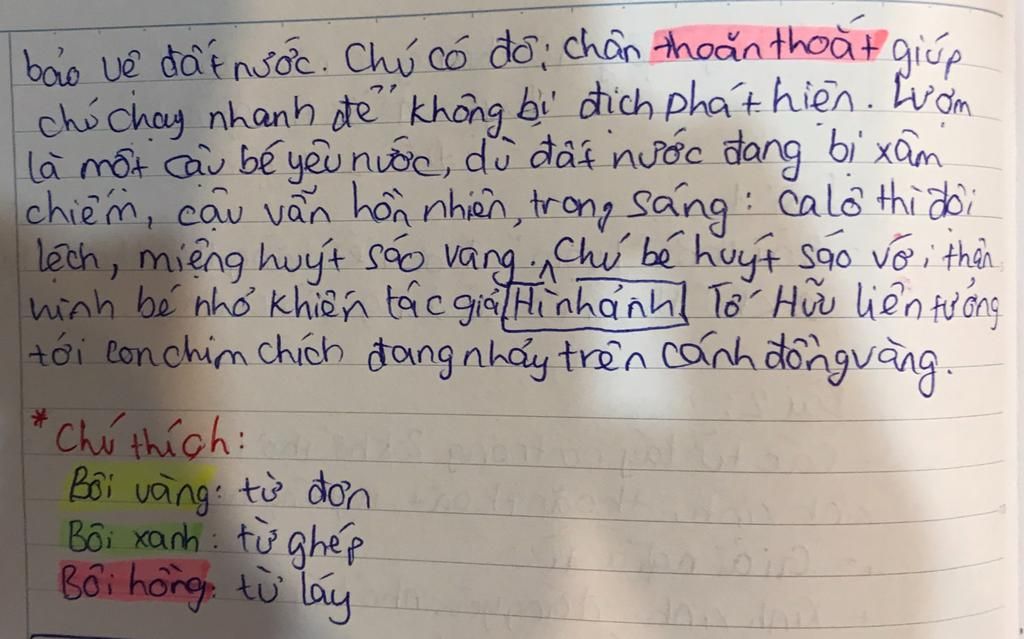 bảo vệ đất nước. Chú có đôi chân thoăn thoắt giúp
chú chạy nhanh để không bị địch phát hiện. Lượm
là một cậu bé yêu nước, dù đất nước đang bị xâm
chiếm, cậu vẫn hồn nhiên, trong sáng: Ca lô thì đội
lệch, miệng huýt sáo vang. ^ Chú bé huýt sáo với thân
hình bé nhỏ khiến tác giả Hình ảnh Tố Hữu liên tưởng
tới con chim chích đang nhảy trên cánh đồng vàng.
* Chú thích:
Bôi vàng: từ đơn
Bôi xanh: từ ghép
Bôi hồng: từ láy